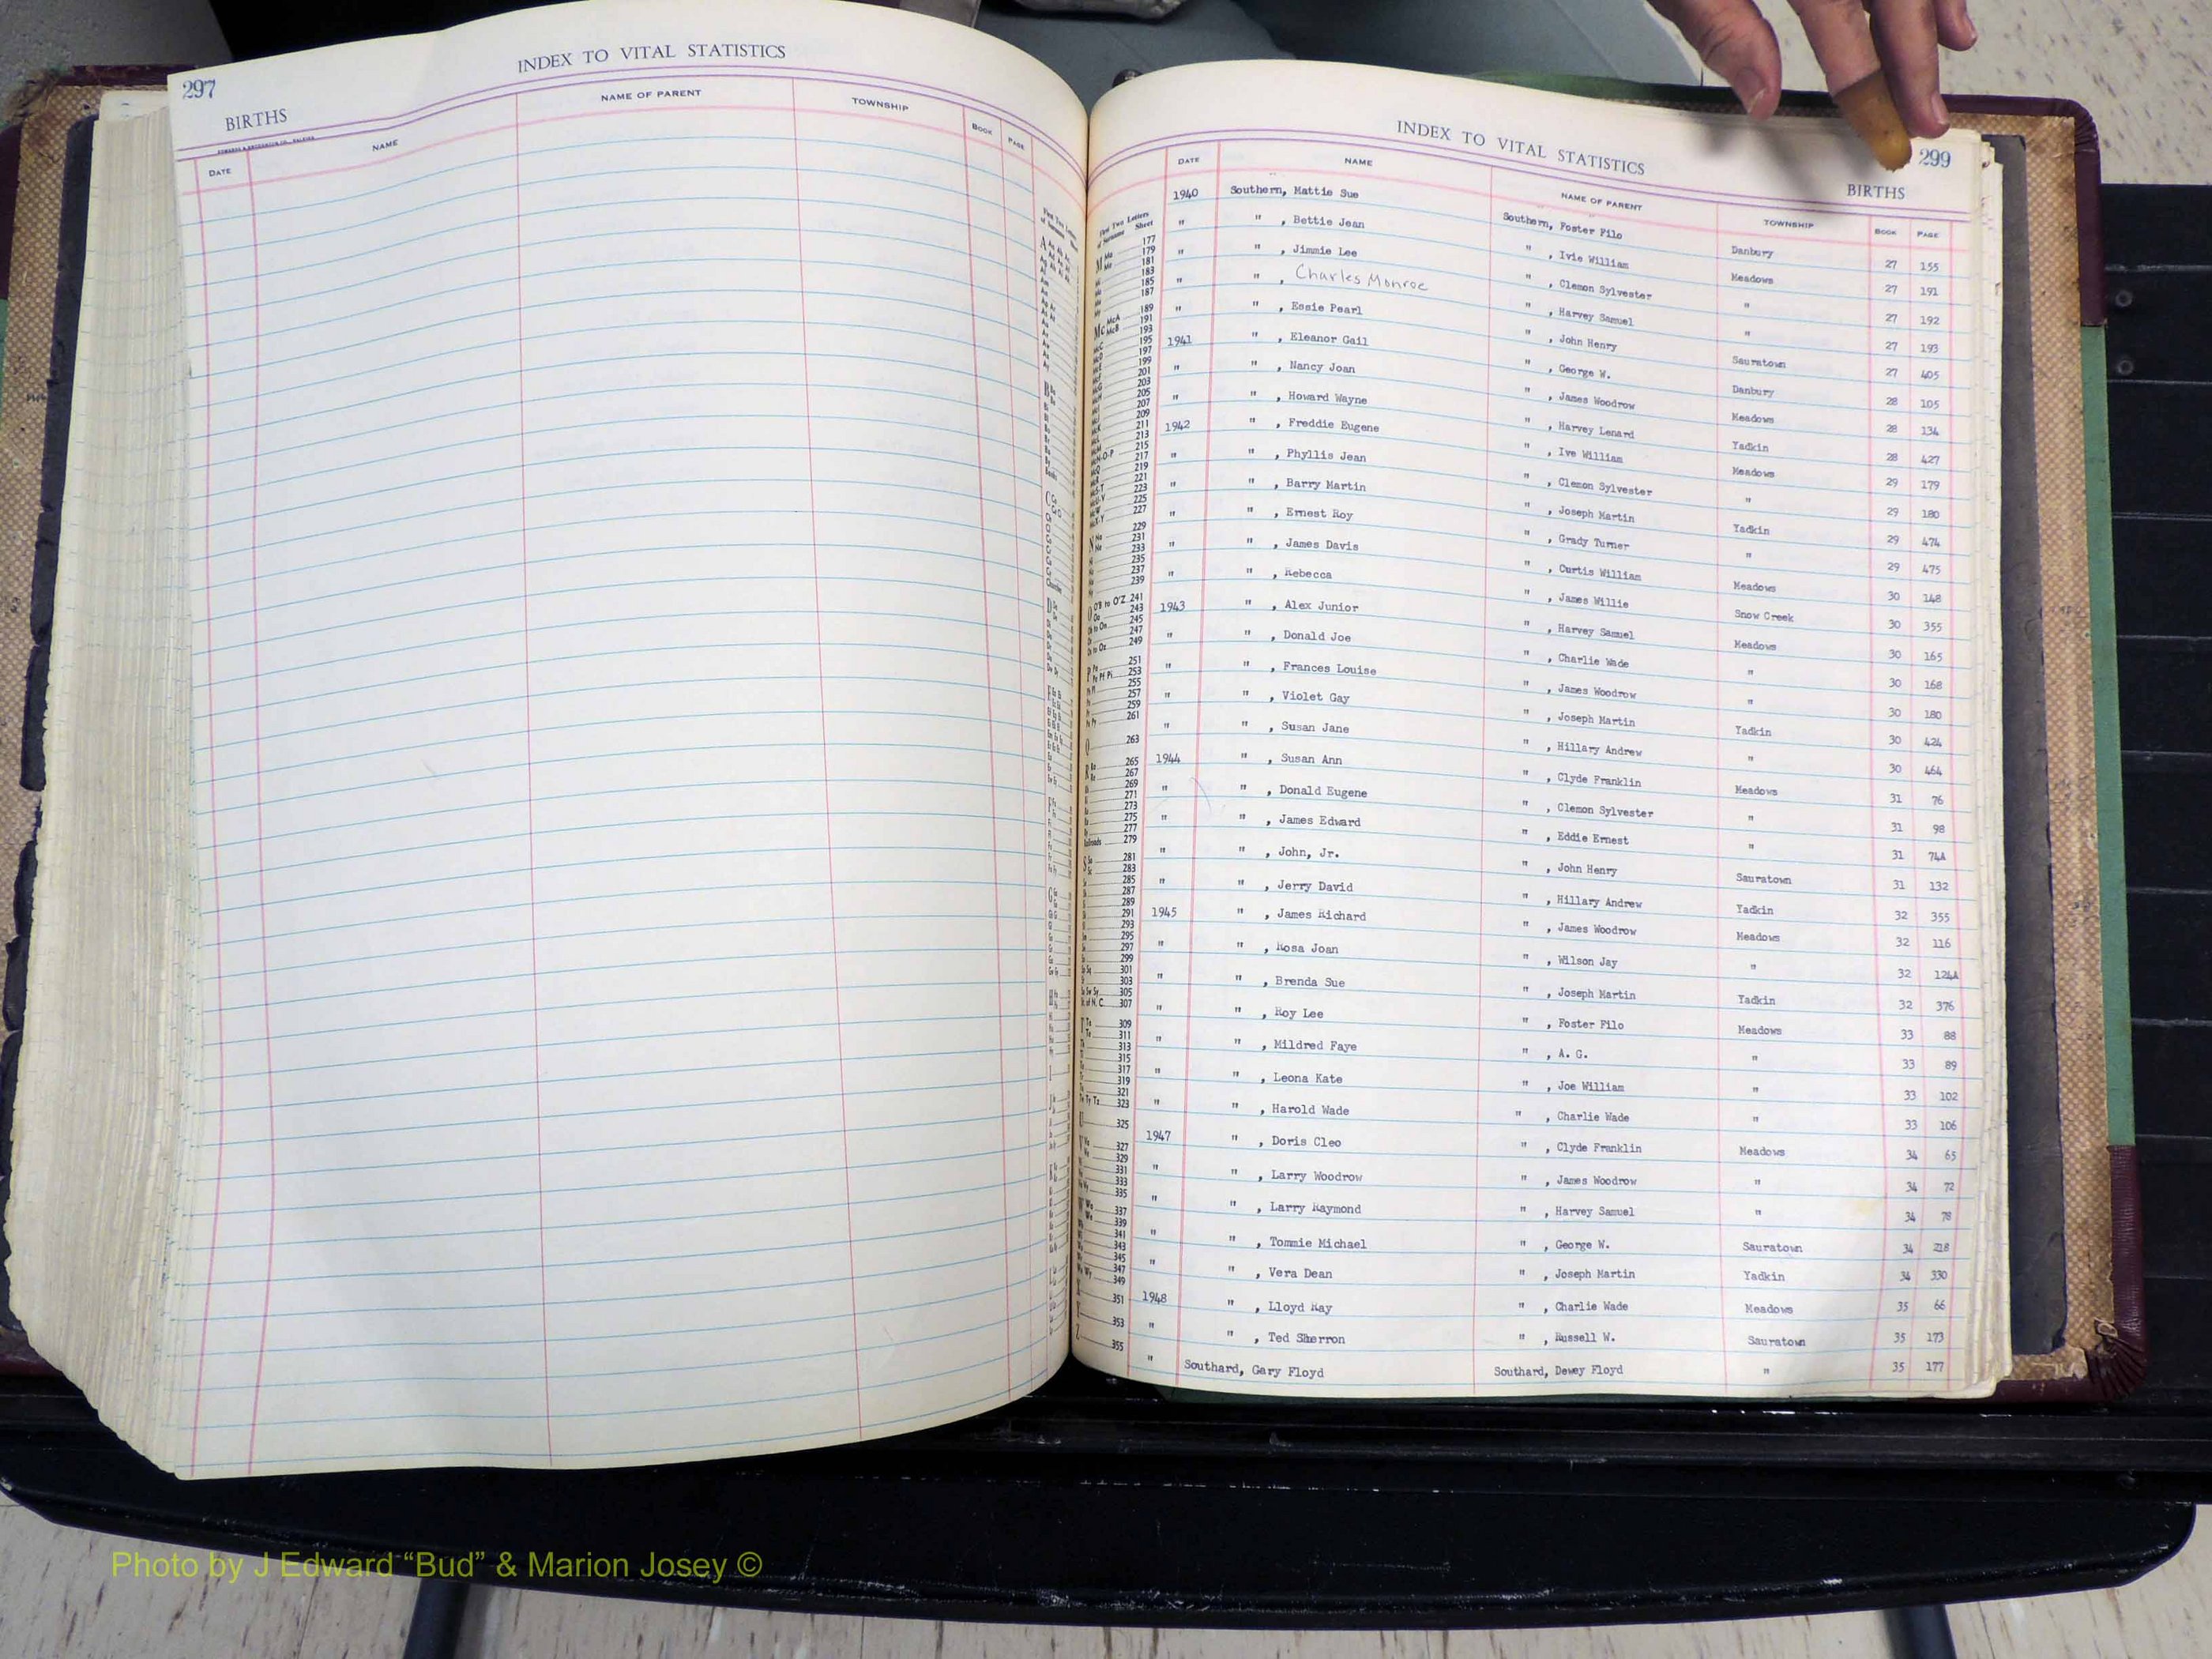 297
INDEX TO VITAL STATISTICS
BIRTHS
DATE NAME NAME OF PARENT TOWNSHIP BOOK PAGE
INDEX TO VITAL STATISTICS
299
BIRTHS
DATE NAME NAME OF PARENT TOWNSHIP BOOK PAGE
1940 Southern, Mattie Sue Southern, Foster Filo Danbury 27 155
" " , Bettie Jean " , Ivie William Meadows 27 191
" " , Jimmie Lee " , Clemon Sylvester " 27 192
" " , Charles Monroe " , Harvey Samuel " 27 193
" " , Essie Pearl " , John Henry Sauratown 27 405
1941 " , Eleanor Gail " , George W. Danbury 28 105
" " , Nancy Joan " , James Woodrow Meadows 28 134
" " , Howard Wayne " , Harvey Lenard Yadkin 28 427
1942 " , Freddie Eugene " , Ive William Meadows 29 179
" " , Phyllis Jean " , Clemon Sylvester " 29 180
" " , Barry Martin " , Joseph Martin Yadkin 29 474
" " , Ernest Roy " , Grady Turner " 29 475
" " , James Davis " , Curtis William Meadows 30 148
" " , Rebecca " , James Willie Snow Creek 30 355
1943 " , Alex Junior " , Harvey Samuel Meadows 30 165
" " , Donald Joe " , Charlie Wade " 30 168
" " , Frances Louise " , James Woodrow " 30 180
" " , Violet Gay " , Joseph Martin Yadkin 30 424
" " , Susan Jane " , Hillary Andrew " 30 464
1944 " , Susan Ann " , Clyde Franklin Meadows 31 76
" " , Donald Eugene " , Clemon Sylvester " 31 98
" " , James Edward " , Eddie Ernest " 31 74A
" " , John, Jr. " , John Henry Sauratown 31 132
" " , Jerry David " , Hillary Andrew Yadkin 32 355
1945 " , James Richard " , James Woodrow Meadows 32 116
" " , Rosa Joan " , Wilson Jay " 32 124A
" " , Brenda Sue " , Joseph Martin Yadkin 32 376
" " , Roy Lee " , Foster Filo Meadows 33 88
" " , Mildred Faye " , A. G. " 33 89
" " , Leona Kate " , Joe William " 33 102
" " , Harold Wade " , Charlie Wade " 33 106
1947 " , Doris Cleo " , Clyde Franklin Meadows 34 65
" " , Larry Woodrow " , James Woodrow " 34 72
" " , Larry Raymond " , Harvey Samuel " 34 78
" " , Tommie Michael " , George W. Sauratown 34 218
" " , Vera Dean " , Joseph Martin Yadkin 34 330
1948 " , Lloyd Ray " , Charlie Wade Meadows 35 66
" " , Ted Sherron " , Russell W. Sauratown 35 173
" Southard, Gary Floyd Southard, Dewey Floyd " 35 177
Photo by J Edward “Bud” & Marion Josey ©